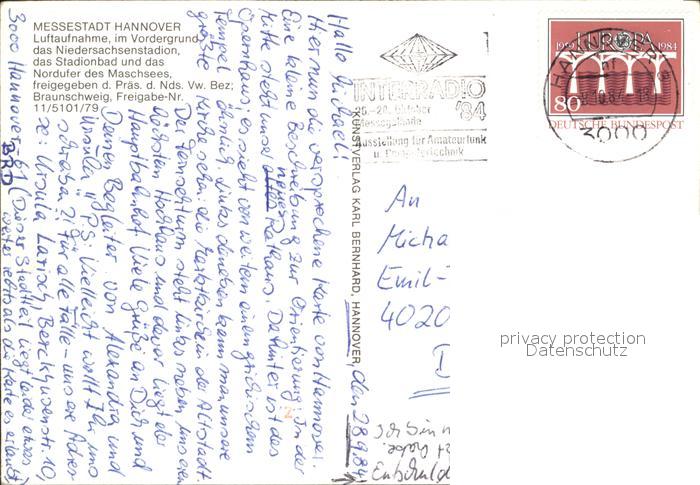 MESSESTADT HANNOVER
Luftaufnahme, im Vordergrund
das Niedersachsenstadion,
das Stadionbad und das
Nordufer des Maschsees,
freigegeben d. Präs. d. Nds. Vw. Bez;
Braunschweig, Freigabe-Nr.
11/5101/79
INTERRADIO
'84
Ausstellung für Amateurfunk
EUROPA
1959 1984
80
DEUTSCHE BUNDESPOST
HANNOVER
3000
KUNSTVERLAG KARL BERNHARD, HANNOVER
Hannover, den 28.9.84
Hallo Michael!
Hier nun die versprochene Karte von Hannover.
Eine kleine Beschreibung zur Orientierung: In der
Mitte steht unser neues Rathaus. Dahinter ist das
Opernhaus; es sieht von weitem einem griechischen
Tempel ähnlich. Links daneben kann man unsere
größte Kirche sehen: die Marktkirche in der Altstadt.
Der Fernsehturm steht links neben unserem
höchsten Hochhaus und davor liegt der
Hauptbahnhof. Viele Grüße an Dich und
Deinen Begleiter von Alexandra und
Ursula!! PS: Vielleicht wollt Ihr uns
schreiben?! Für alle Fälle - unsere Adres-
se: Ursula Larisch, Berckhusenstr. 10,
3000 Hannover 61 (Dieser Stadtteil liegt leider etwas
BRD weiter rechts als die Karte es erlaubt)
An
Micha
Emil-
4020
D
privacy protection
Datenschutz